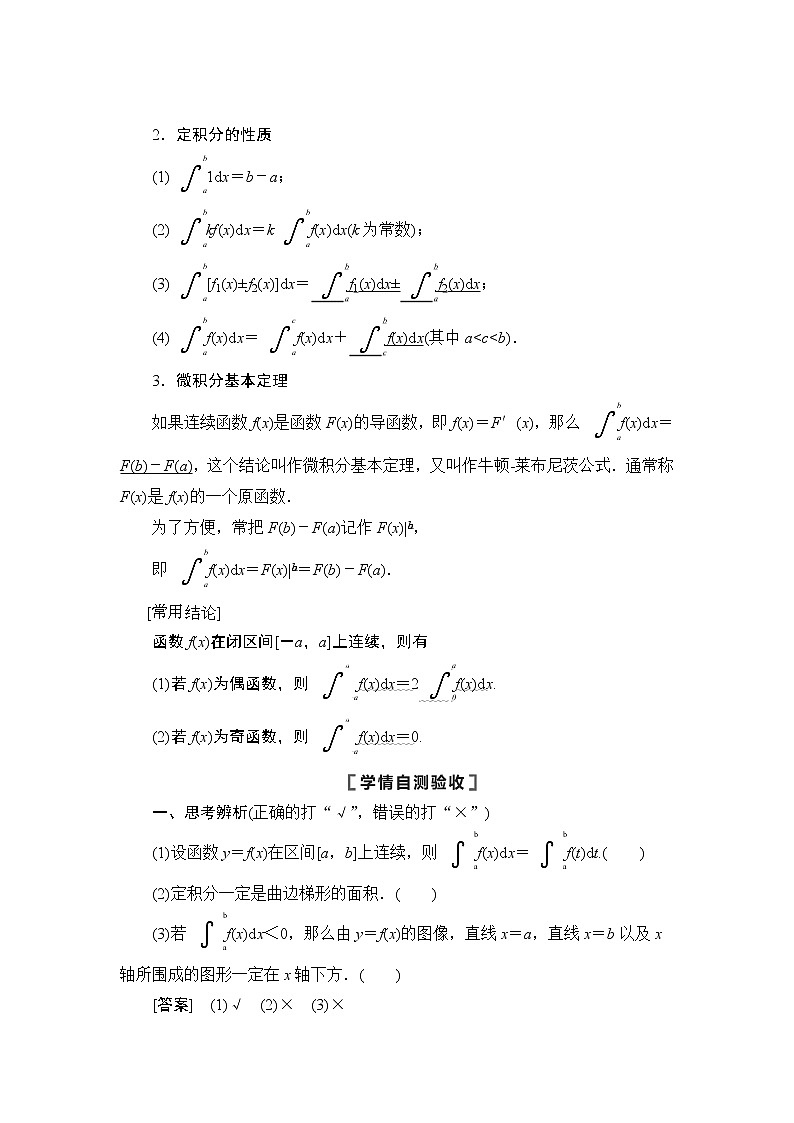 2．定积分的性质
(1) ∫ₐᵇ1dx＝b－a；
(2) ∫ₐᵇkf(x)dx＝k ∫ₐᵇf(x)dx(k为常数)；
(3) ∫ₐᵇ[f₁(x)±f₂(x)]dx＝ ∫ₐᵇf₁(x)dx± ∫ₐᵇf₂(x)dx；
(4) ∫ₐᵇf(x)dx＝ ∫ₐᶜf(x)dx＋ ∫_c^b f(x)dx(其中a<c<b)．
3．微积分基本定理
如果连续函数f(x)是函数F(x)的导函数，即f(x)＝F′(x)，那么 ∫ₐᵇf(x)dx＝
F(b)－F(a)，这个结论叫作微积分基本定理，又叫作牛顿-莱布尼茨公式．通常称
F(x)是f(x)的一个原函数．
为了方便，常把F(b)－F(a)记作F(x)|ₐᵇ，
即 ∫ₐᵇf(x)dx＝F(x)|ₐᵇ＝F(b)－F(a)．
[常用结论]
函数f(x)在闭区间[－a，a]上连续，则有
(1)若f(x)为偶函数，则 ∫₋ₐᵃf(x)dx＝2 ∫₀ᵃf(x)dx.
(2)若f(x)为奇函数，则 ∫₋ₐᵃf(x)dx＝0.
[学情自测验收]
一、思考辨析(正确的打“√”，错误的打“×”)
(1)设函数y＝f(x)在区间[a，b]上连续，则 ∫ₐᵇf(x)dx＝ ∫ₐᵇf(t)dt.( )
(2)定积分一定是曲边梯形的面积．( )
(3)若 ∫ₐᵇf(x)dx＜0，那么由y＝f(x)的图像，直线x＝a，直线x＝b以及x
轴所围成的图形一定在x轴下方．( )
[答案] (1)√ (2)× (3)×